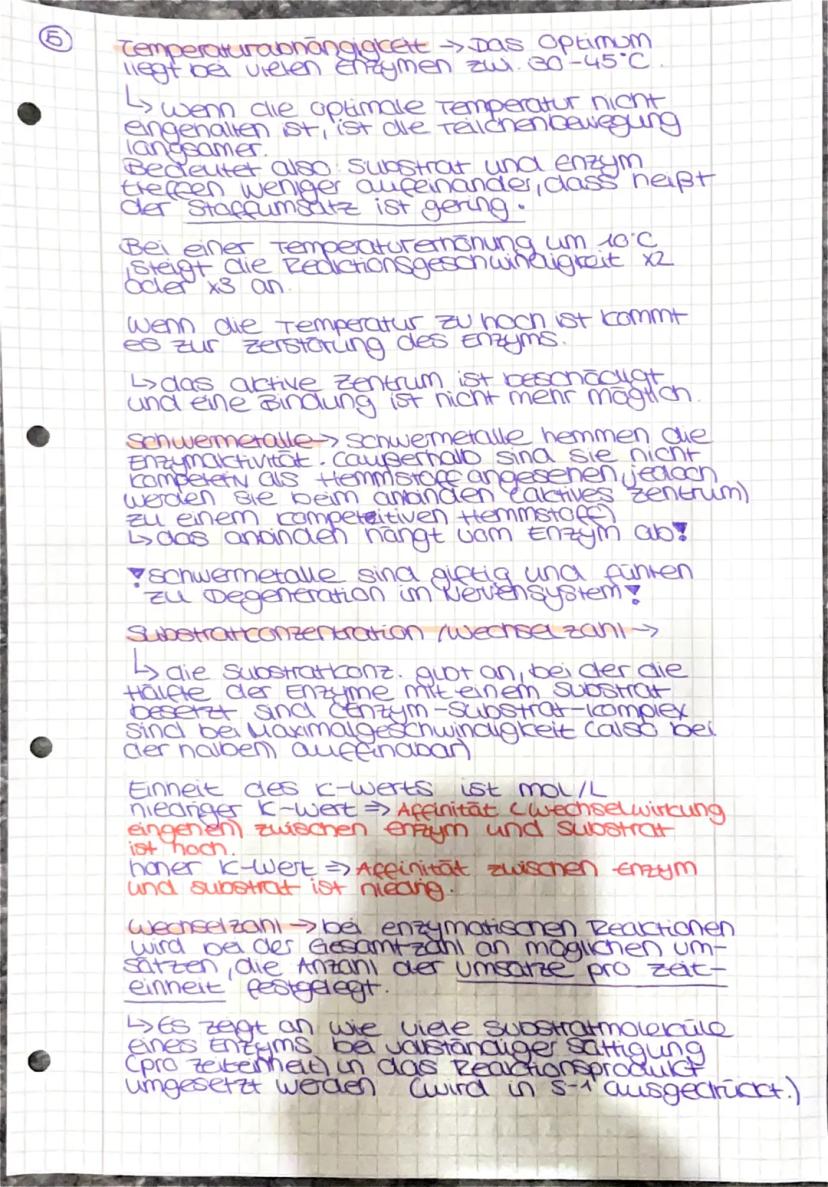 5
Temperaturabhängigkeit → Das Optimum
liegt bei vielen Enzymen zwi. 30-45°C.
↳ wenn die optimale Temperatur nicht
eingehalten ist, ist die Teilchenbewegung
langsamer.
Bedeutet also: Substrat und Enzym
treffen weniger aufeinander, dass heißt
der Stoffumsatz ist gering.
Bei einer Temperaturerhöhung um 10°C
, steigt die Reaktionsgeschwindigkeit x2
oder x3 an.
Wenn die Temperatur zu hoch ist kommt
es zur Zerstörung des Enzyms.
↳ das aktive Zentrum ist beschädigt
und eine Bindung ist nicht mehr möglich.
Schwermetalle → Schwermetalle hemmen die
Enzymaktivität. (außerhalb sind sie nicht
kompetetiv als Hemmstoff angesehen, jedoch
werden sie beim anbinden (aktives Zentrum)
zu einem kompetitiven Hemmstoff)
↳ das anbinden hängt vom Enzym ab!
! Schwermetalle sind giftig und führen
zu Degeneration im Nervensystem!
Substratkonzentration / Wechselzahl →
↳ die Substratkonz. gibt an, bei der die
Hälfte der Enzyme mit einem Substrat
besetzt sind (Enzym-Substrat-Komplex
sind bei Maximalgeschwindigkeit (also bei
der halben) auffindbar)
Einheit des K-Werts ist mol/L
niedriger K-Wert ⇒ Affinität (Wechselwirkung
eingehen) zwischen Enzym und Substrat
ist hoch.
hoher K-Wert ⇒ Affinität zwischen Enzym
und Substrat ist niedrig.
Wechselzahl → bei enzymatischen Reaktionen
wird bei der Gesamtzahl an möglichen Um-
sätzen, die Anzahl der Umsätze pro Zeit-
einheit festgelegt.
↳ Es zeigt an wie viele Substratmoleküle
eines Enzyms bei vollständiger Sättigung
(pro Zeiteinheit) in das Reaktionsprodukt
umgesetzt werden (wird in s-1 ausgedrückt.)